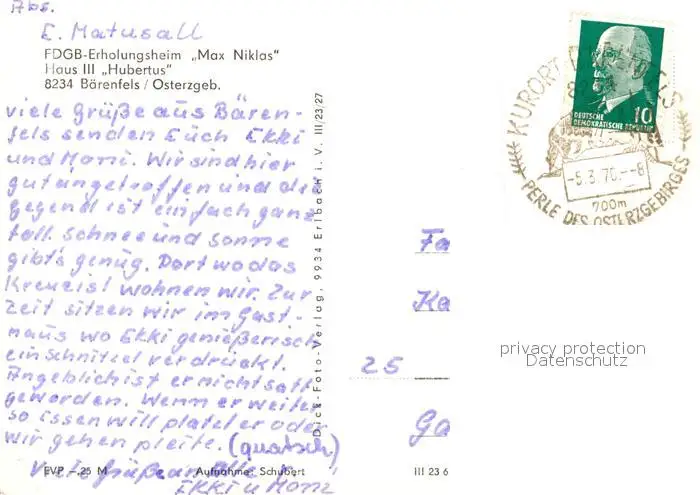 Abs.
E. Matusall
FDGB-Erholungsheim „Max Niklas"
Haus III „Hubertus"
8234 Bärenfels / Osterzgeb.
viele Grüße aus Bären-
fels senden Euch Ekki
und Moni. Wir sind hier
gut angetroffen und die
gegend ist einfach ganz
toll. Schnee und sonne
gibt's genug. Dort wo das
Kreuz ist wohnen wir. Zur
Zeit sitzen wir im Gast-
haus wo Ekki genießerisch
ein Schnitzel verdrückt.
Angeblich ist er nicht satt
geworden. Wenn er weiter
so Essen will platzt er oder
wir gehen pleite. (quatsch)
Viele Grüße
Ekki u Moni
EVP –,25 M
Aufnahme: Schubert
III 23 6
Dick-Foto-Verlag, 9934 Erlbach i. V. III/23/27
Fa
Ka
25
Ga
DEUTSCHE
DEMOKRATISCHE REPUBLIK
10
KURORT
-5.3.70.--8
700m
PERLE DES OSTERZGEBIRGES
privacy protection
Datenschutz